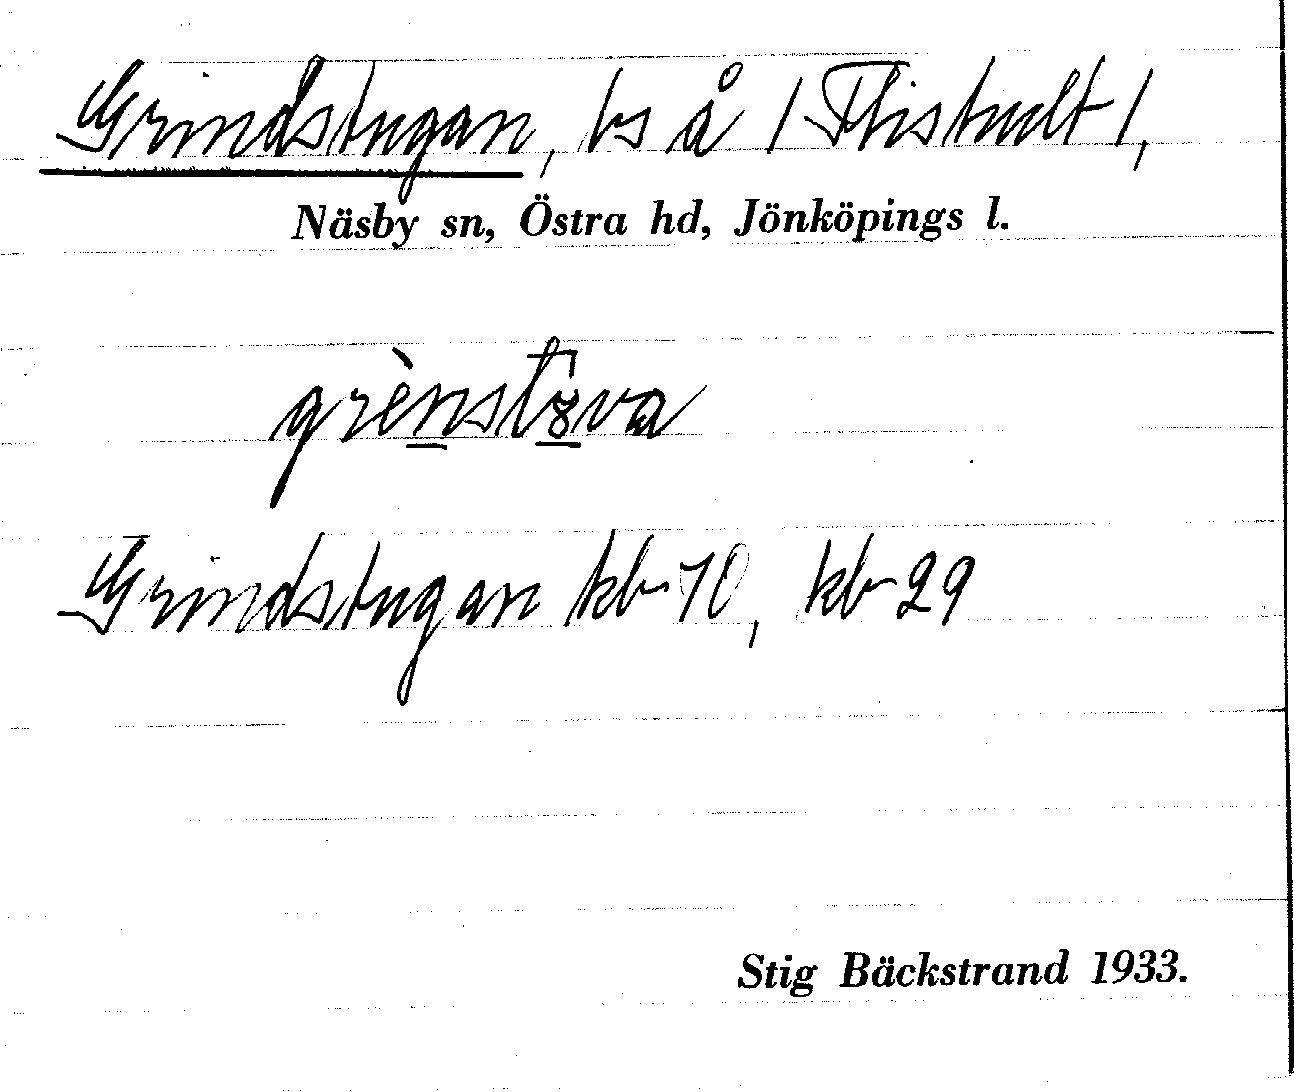 Grindstugan, bs å / Flistult /,
Näsby sn, Östra hd, Jönköpings l.
grènstova
Grindstugan kb 70, kb 29
Stig Bäckstrand 1933.